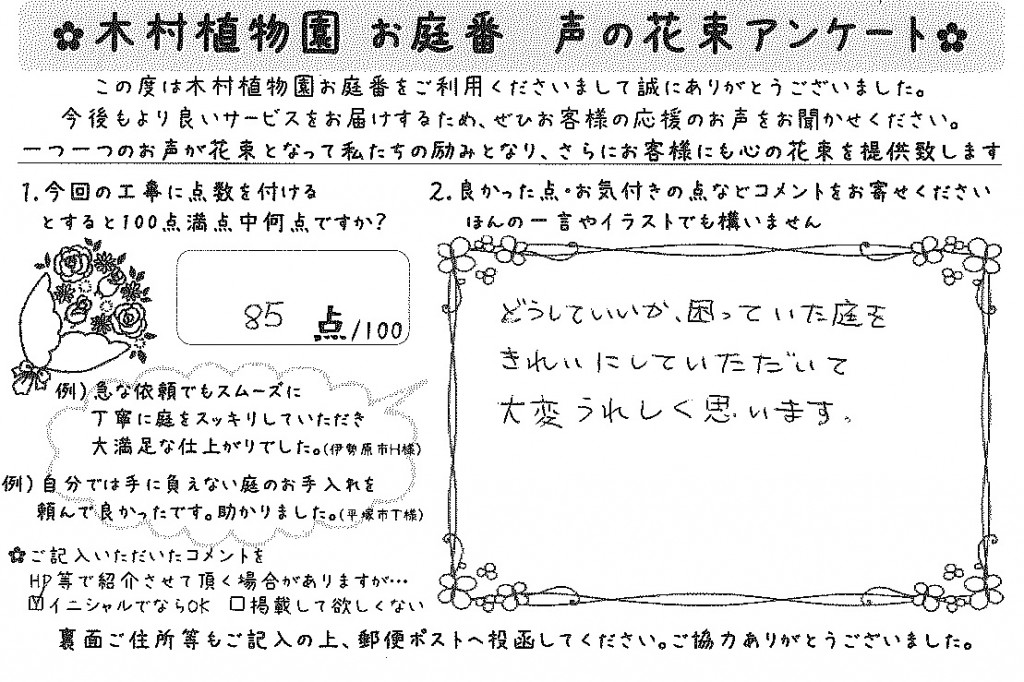 ✿木村植物園 お庭番 声の花束アンケート✿
この度は木村植物園お庭番をご利用くださいまして誠にありがとうございました。
今後もより良いサービスをお届けするため、ぜひお客様の応援のお声をお聞かせください。
一つ一つのお声が花束となって私たちの励みとなり、さらにお客様にも心の花束を提供致します
1.今回の工事に点数を付ける
とすると100点満点中何点ですか?
85 点/100
例)急な依頼でもスムーズに
丁寧に庭をスッキリしていただき
大満足な仕上がりでした。(伊勢原市H様)
例)自分では手に負えない庭のお手入れを
頼んで良かったです。助かりました。(平塚市T様)
✿ご記入いただいたコメントを
HP等で紹介させて頂く場合がありますが…
☑イニシャルでならOK □掲載して欲しくない
2.良かった点・お気付きの点などコメントをお寄せください
ほんの一言やイラストでも構いません
どうしていいか、困っていた庭を
きれいにしていただいて
大変うれしく思います。
裏面ご住所等もご記入の上、郵便ポストへ投函してください。ご協力ありがとうございました。